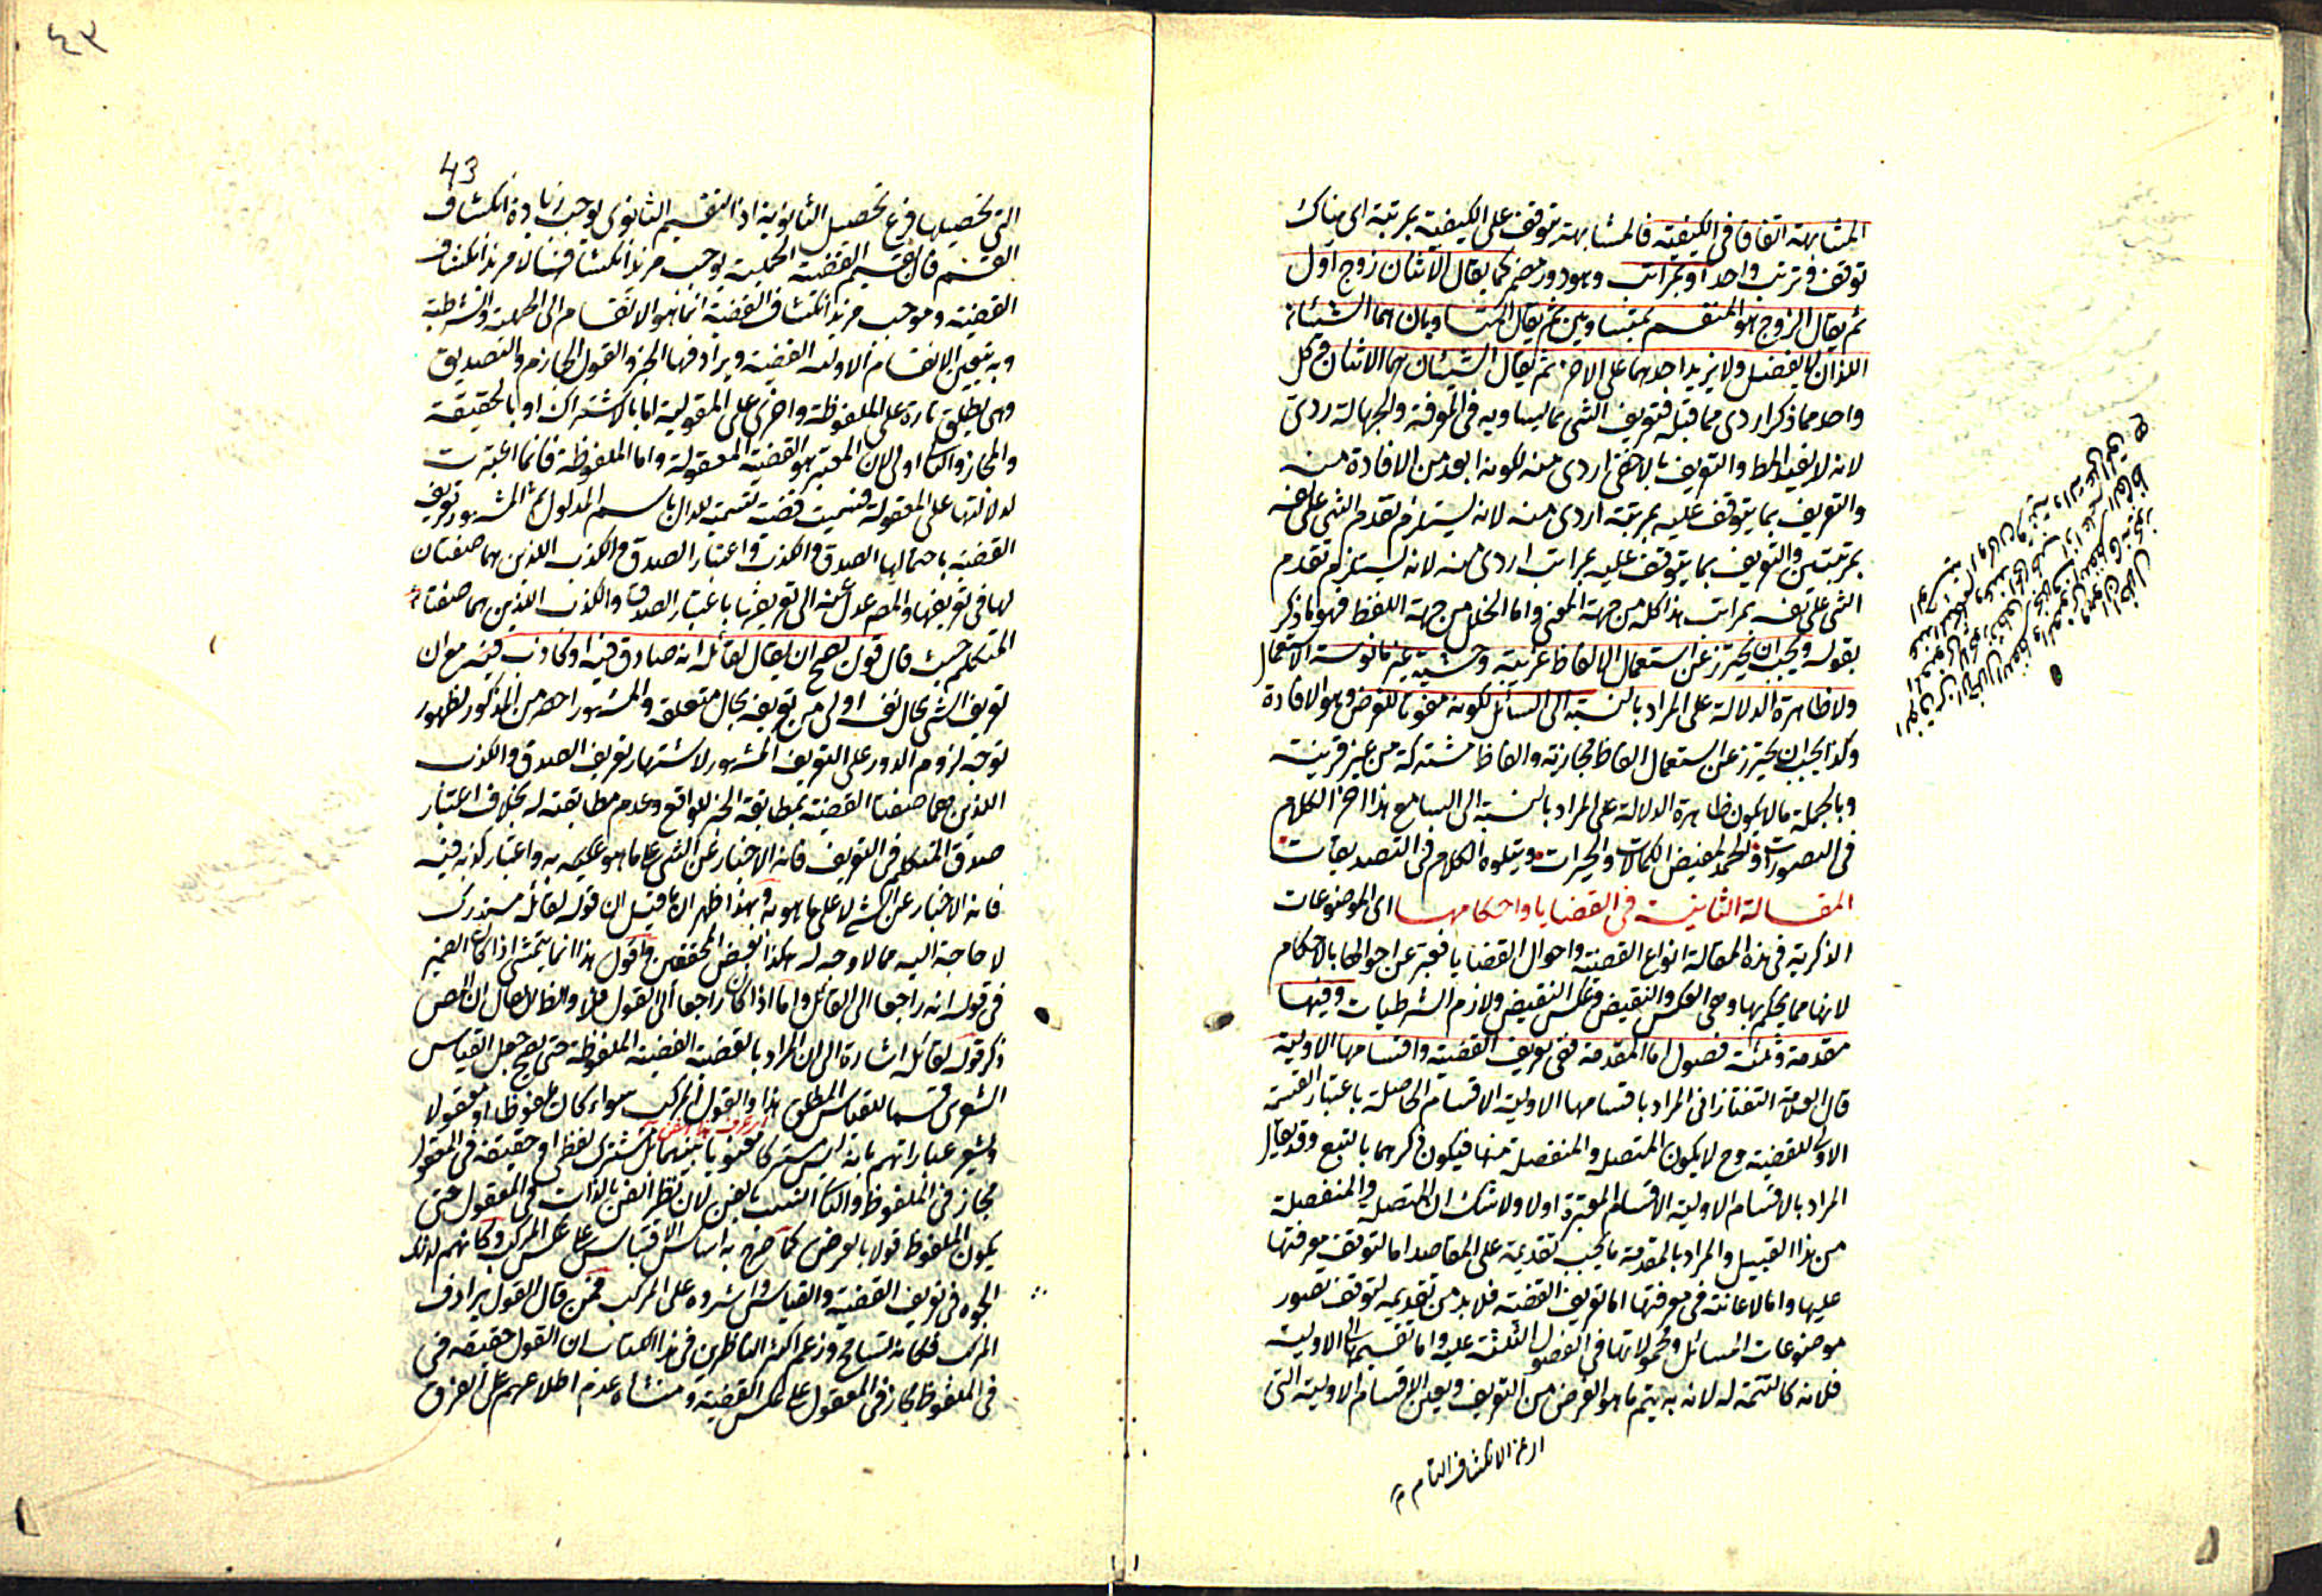 المشابهة اتفاقا فى الكيفية فالمشابهة توقف على الكيفية بمرتبة اى هناك
توقف وترتب واحد او بمراتب وهو دور مضمر كما يقال الاثنان زوج اول
ثم يقال الزوج هو المنقسم بمتساويين ثم يقال المتساويان هما الشيئان
اللذان لا يفضل ولا يزيد احدهما على الاخر ثم يقال الشيئان هما الاثنان وكل
واحد مما ذكر اردى مما قبله فتعريف الشئ بما يساويه فى المعرفة والجهالة ردى
لانه لا يفيد المط والتعريف بالاخفى اردى منه لكونه ابعد من الافادة منه
والتعريف بما يتوقف عليه بمرتبة اردى منه لانه يستلزم تقدم الشئ على نفسه
بمرتبتين والتعريف بما يتوقف عليه بمراتب اردى منه لانه يستلزم تقدم
الشئ على نفسه بمراتب هذا كله من جهة المعنى واما الخلل من جهة اللفظ فهو ما ذكر
بقوله ويجب ان يحترز عن استعمال الالفاظ غريبة وحشية غير مانوسة الاستعمال
ولا ظاهرة الدلالة على المراد بالنسبة الى السائل لكونه مفوتا للغرض وهو الافادة
وكذا يجب ان يحترز عن استعمال الفاظ مجازية والفاظ مشتركة من غير قرينة
وبالجملة ما لا يكون ظاهرة الدلالة على المراد بالنسبة الى السامع هذا اخر الكلام
فى التصورات والحمد لمفيض الكمالات والخيرات ويتلوه الكلام فى التصديقات
المقالة الثانية فى القضايا واحكامها اى الموضوعات
الذكرية فى هذه المقالة انواع القضية واحوال القضايا فعبر عن احوالها بالاحكام
لانها مما يحكم بها وهى العكس والنقيض وعكس النقيض ولازم الشرطيات وفيها
مقدمة وثلثة فصول اما المقدمة ففى تعريف القضية واقسامها الاولية
قال العلامة التفتازانى المراد باقسامها الاولية الاقسام الحاصلة باعتبار القسمة
الاولى للقضية وح لا يكون المتصلة والمنفصلة منها فيكون ذكرهما بالتبع وقد يقال
المراد بالاقسام الاولية الاقسام المعتبرة اولا ولا شك ان المتصلة والمنفصلة
من هذا القبيل والمراد بالمقدمة ما يجب تقديمه على المقاصد اما لتوقف معرفتها
عليها واما لاعانته فى معرفتها اما تعريف القضية فلا بد من تقديمه لتوقف تصور
موضوعات المسائل ومحمولاتها فى الفصول الثلثة عليه واما تقسيمها الى الاولية
فلانه كالتتمة له لانه به يتم ما هو الغرض من التعريف ويعين الاقسام الاولية التى
اى من الانكشاف التام
43
التى تحصيلها فرع تحصيل الثانوية اذ التقسيم الثانوى يوجب زيادة انكشاف
القسم فان تقسيم القضية الحملية يوجب مزيد انكشافها لا مزيد انكشاف
القضية وموجب مزيد انكشاف القضية انما هو الانقسام الى الحملية والشرطية
وبه تبين الانقسام الاولية القضية ويرادفها الخبر والقول الجازم والتصديق
وهى يطلق تارة على الملفوظة واخرى على المعقولة اما بالاشتراك او بالحقيقة
والمجاز والثانى اولى لان المعتبر هو القضية المعقولة واما الملفوظة فانما اعتبرت
لدلالتها على المعقولة فسميت قضية تسمية للدال باسم المدلول ثم المشهور تعريف
القضية باحتمالها الصدق والكذب واعتبار الصدق والكذب اللذين هما صفتان
لها فى تعريفها والمص عدل عنه الى تعريفها باعتبار الصدق والكذب اللذين هما صفتا
المتكلم حيث قال قول يصح ان يقال لقائله انه صادق فيه او كاذب فيه مع ان
تعريف الشئ بحال نفسه اولى من تعريفه بحال متعلقه والمشهور اخصر من المذكور لظهور
توجه لزوم الدور على التعريف المشهور لاشتهار تعريف الصدق والكذب
اللذين هما صفتا القضية بمطابقة الخبر للواقع وعدم مطابقته له بخلاف اعتبار
صدق المتكلم فى التعريف فانه الاخبار عن الشئ على ما هو عليه به واعتبار كذبه فيه
فانه الاخبار عن الشئ لا على ما هو به وبهذا ظهر ان ما قيل ان قوله لقائله مستدرك
لا حاجة اليه مما لا وجه له هكذا بعض المحققين واقول هذا انما يتمشى اذا كان الضمير
فى قوله انه راجعا الى القائل واما اذا كان راجعا الى القول فلا والظ لا يقال ان المص
ذكر قوله لقائله اشارة الى ان المراد بالقضية القضية الملفوظة حتى يصح جعل القياس
الشعرى قسما للقياس المطلق هذا والقول المركب سواء كان ملفوظا او معقولا
ويشعر عباراتهم بانه ليس مشتركا معنويا بينهما بل مشترك لفظى او حقيقة فى المعقول
مجاز فى الملفوظ والثانى انسب بالفن لان نظر الفن بالذات فى المعقول حتى
يكون الملفوظ قولا بالعرض كما صرح به اساس الاقتباس على عكس المركب وكانهم لذلك
الجوه فى تعريف القضية والقياس واشروه على المركب فمن قال القول يرادف
المركب فكانه تسامح وزعم اكثر الناظرين فى هذا الكتاب ان القول حقيقة فى
فى الملفوظ مجاز فى المعقول على عكس القضية ومنشأه عدم اطلاعهم على الفرق